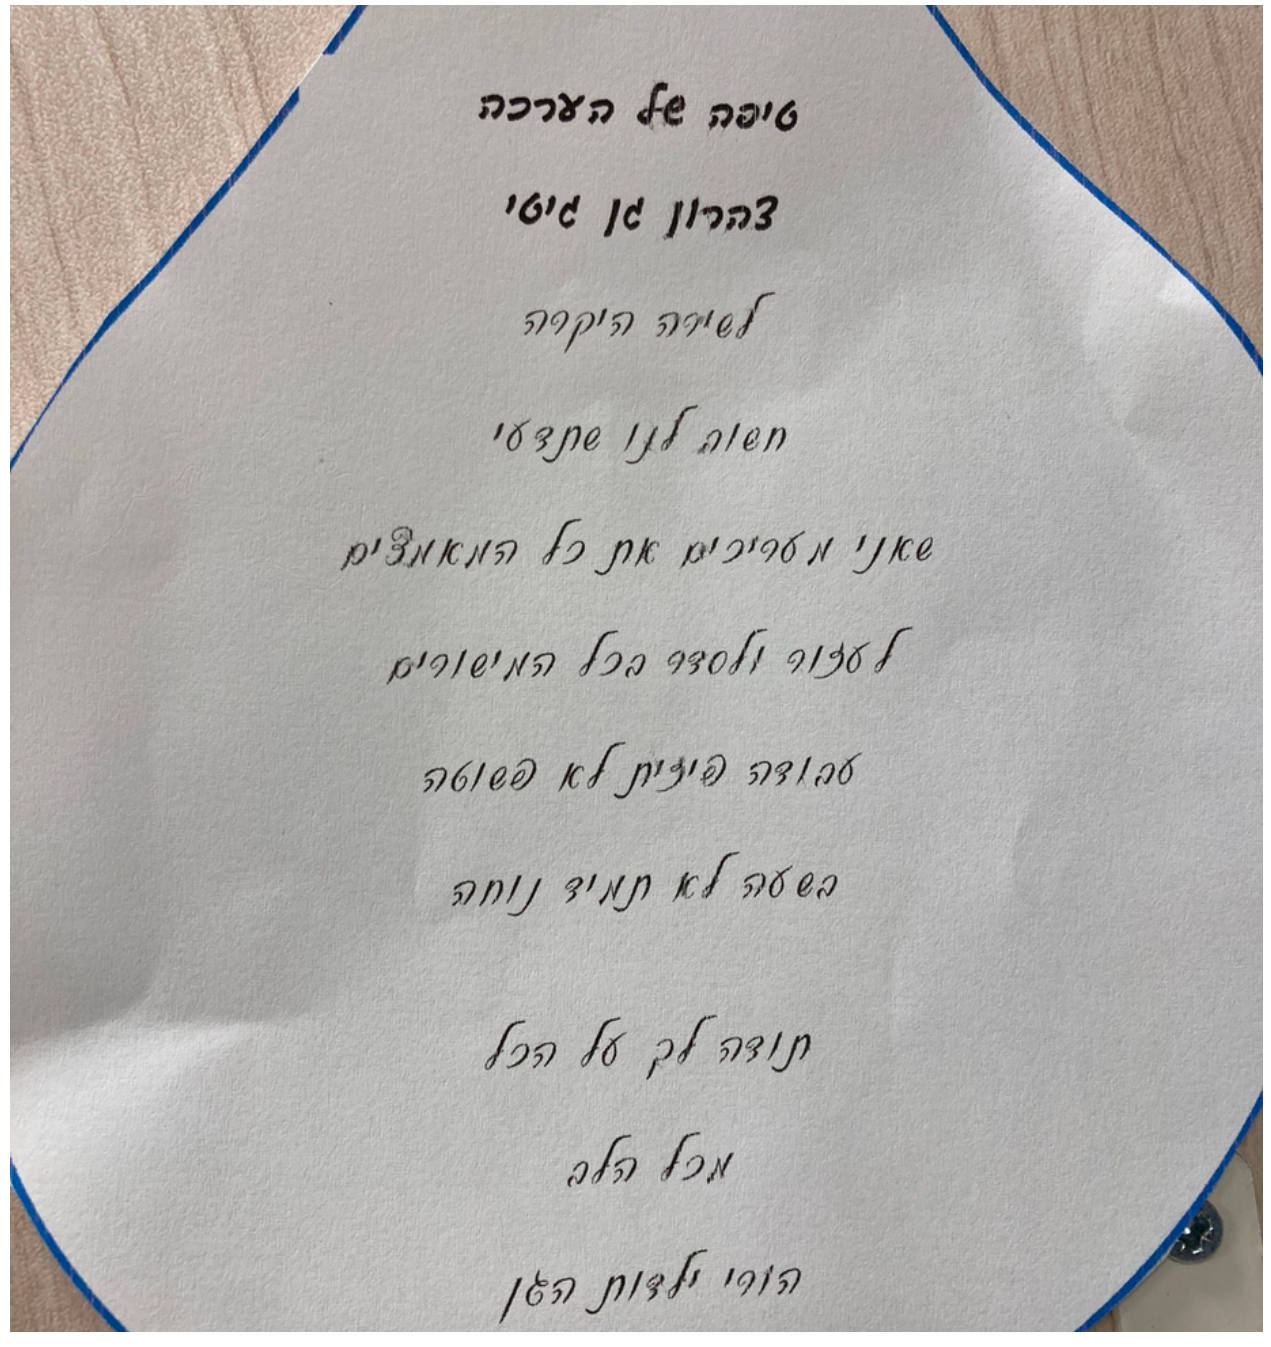 טיפה של הערכה
צהרון גן גיטי
לשירה היקרה
חשוב לנו שתדעי
שאני מעריכים את כל המאמצים
לעזור ולסדר בכל המישורים
עבודה פיזית לא פשוטה
בשעה לא תמיד נוחה
תודה לך על הכל
מכל הלב
הורי ילדות הגן